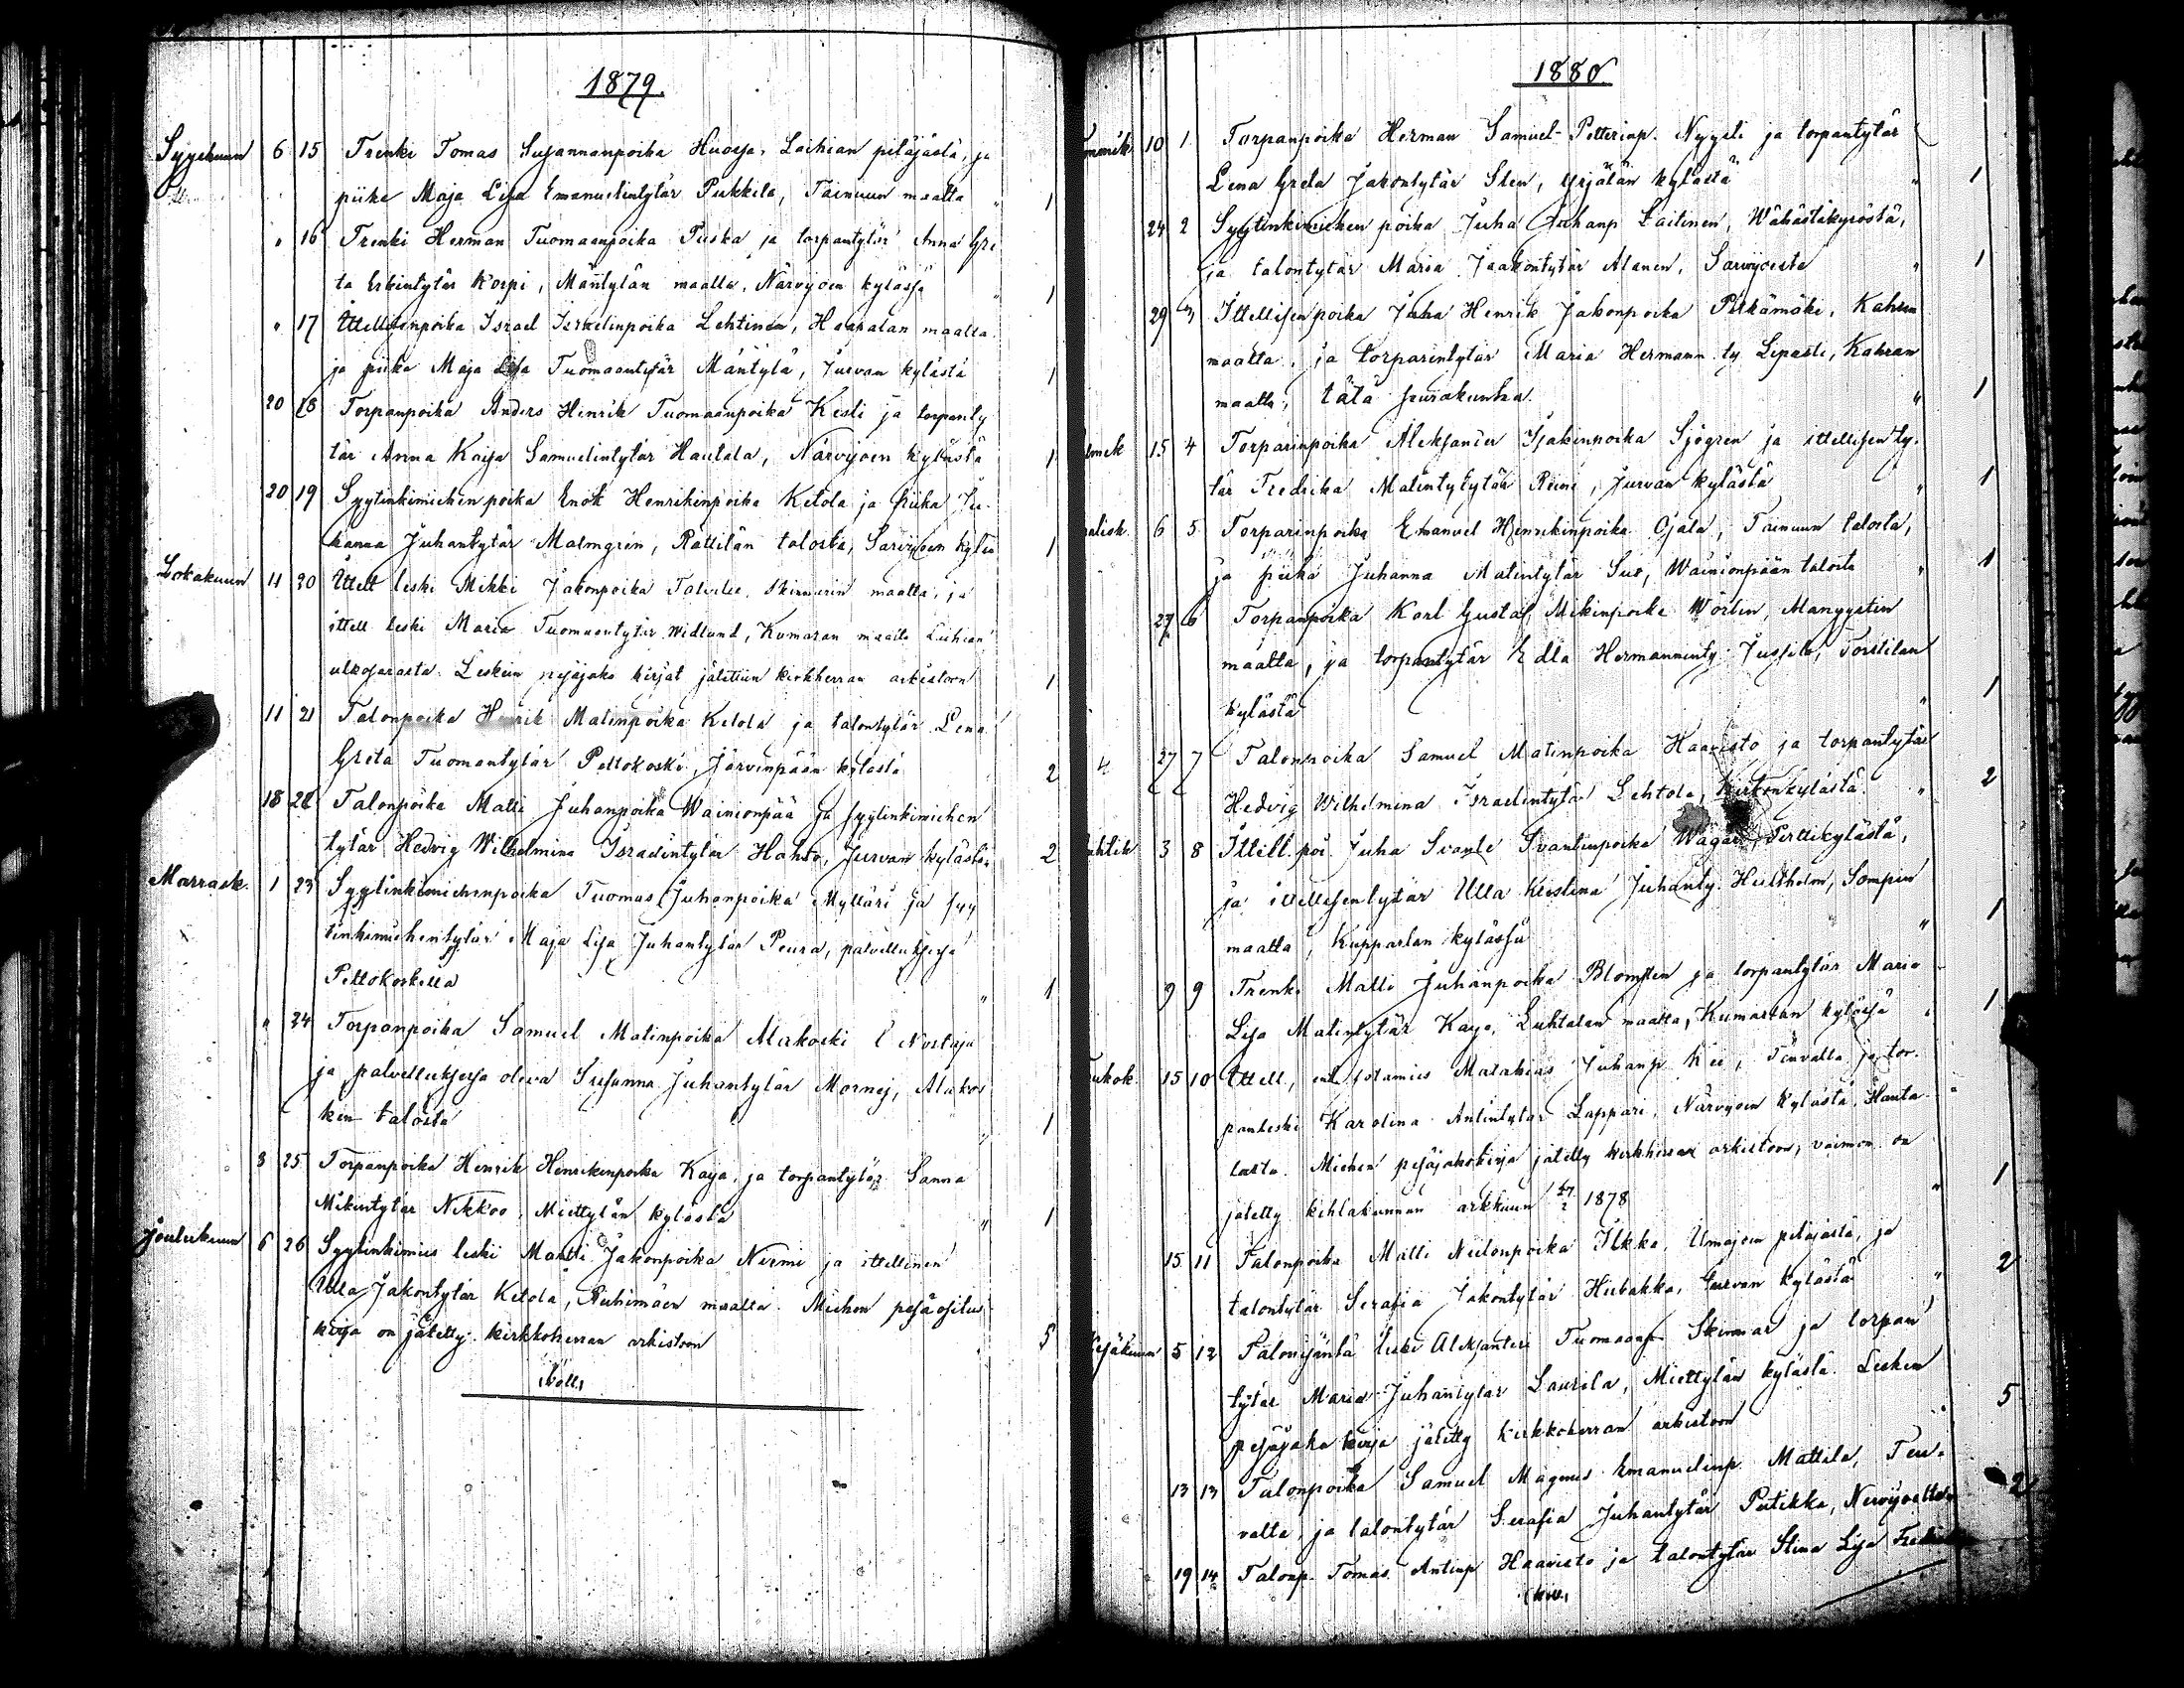 1879.
Syyskuun 6 15 Trenki Tomas Susannanpoika Huosja, Laihian pitäjästä, ja
piika Maja Lisa Emanuelintytär Pukkila, Tainuun maalta " 1
" 16 Trenki Herman Tuomaanpoika Puska ja torpantytär Anna Gre
ta Erkintytär Korpi, Mäntylän maalla, Närvijoen kylässä " 1
" 17 Ittellisenpoika Israel Israelinpoika Lehtinen, Haapalan maalta
ja piika Maja Lisa Tuomaantytär Mäntylä, Jurvan kylästä 1
20 18 Torpanpoika Anders Henrik Tuomaanpoika Kesti ja torpanty
tär Anna Kaisa Samuelintytär Hautala, Närvijoen kylästä 1
20 19 Syytinkimiehen poika Enok Henrikinpoika Ketola ja piika Ju
hanna Juhantytär Malmgrén, Rättilän talosta, Sarvijoen kyläs 1
Lokakuun 11 20 Ittell leski Mikki Jakonpoika maalta, ja
ittell leski Maria Tuomaantytär Widlund, Kumaran maalta Laihian
ulkojarasta. Leskein pesäjako kirjat jätettiin kirkkherran arkistoon 1
11 21 Talonpoika Henrik Matinpoika Ketola ja talontytär Lena
Greta Tuomantytär Peltokoski, Järvenpään kylästä 2
18 22 Talonpoika Matti Juhanpoika Wainionpää ja syytinkimiehen
tytär Hedvig Wilhelmina Israelintytär Hahto, Jurvan kylästä 2
Marrask. 1 23 Syytinkimiehenpoika Tuomas Juhanpoika Mylläri ja syy
tinkimiehentytär Maja Lisa Juhantytär Peura, palvelluksessa
Peltokoskella " 1
" 24 Torpanpoika Samuel Matinpoika Alakoski
ja palvelluksessa oleva Susanna Juhantytär Alakos
ken talosta " 1
3 25 Torpanpoika Henrik Henrikinpoika Kaya, ja torpantytär Sanna
Mikintytär Nikkoo, Miettylän kylästä " 1
Joulukuun 6 26 Syytinkimies leski Matti Jakonpoika Niemi ja ittellinen
Ulla Jakontytär Ketola, Riihimäen maalta. Miehen pesäositus
kirja on jätetty kirkkoherran arkistoon 5
1880
10 1 Torpanpoika Herman Samuel-Petterinp. Nyysti ja torpantytär
Lena Greta Jakontytär Sten, Yrjälän kylästä " 1
24 2 Syytinkimiehen poika Juha Juhanp Laitinen, Wähästäkyröstä,
ja talontytär Maria Jaakontytär Alanen, Sarvijoesta " 1
29 3 Ittellisenpoika Juha Henrik Jakonpoika Pitkämäki, Kahran
maalta, ja torparintytär Maria Hermann.ty. Lepasti, Kahran
maalta, tätä seurakuntaa. " 1
15 4 Torparinpoika Aleksander Isakinpoika Sjögren ja ittellisenty-
tär Fredrika Matintytytär Reini, Jurvan kylästä " 1
6 5 Torparinpoika Emanuel Henrikinpoika Ojala, Tainuun talosta,
ja piika Juhanna Matintytär Suo, Wainionpään talosta " 1
27 6 Torpanpoika Karl Gustaf Mikinpoika Wörlin,
maalta, ja torpantytär Edla Hermanninty. Jussila, Torstilan
kylästä " 1
27 7 Talonpoika Samuel Matinpoika Haavisto ja torpantytär
Hedvig Wilhelmina Israelintytär Lehtola, Kirkonkylästä. " 2
3 8 Ittell.poi. Juha Svante Svantinpoika Wägar, Perttikylästä,
ja ittellisentytär Ulla Kristina Juhanty. Hultholm, Sompin
maalta, Kupparlan kylässä " 1
9 9 Trenki Matti Juhanpoika Blomsten ja torpantytär Maria
Lisa Matintytär Kaya, Luhtalan maalta, Kumarlan kylässä " 1
15 10 Ittell, ent. sotamies Matahias Juhanp. Kii, Teuvalta ja tor-
panleski Karolina Antintytär Lappari, Närvijoen kylästä, Hanta
lasta. Miehen pesäjakokirja jätetty kirkkherran arkistoon, vaimon on
jätetty kihlakunnan arkkuun 1878 " 1
15 11 Talonpoika Matti Niilonpoika Ilkka, Ilmajoen pitäjästä, ja
talontytär Serafia Jakontytär Hiibakka, Jurvan kylästä " 2
Kesäkuun 5 12 Talonisäntä leski Aleksanteri Tuomaanp. Skinnar ja torpan
tytär Maria Juhantytär Laurila, Miettylän kylästä. Lesken
pesäjako kirja jätetty kirkkoherran arkistoon 5
13 13 Talonpoika Samuel Magnus Emanuelinp. Mattila, Teu-
valta, ja talontytär Serafia Juhantytär Putikka, 2
19 14 Talonp. Tomas Antinp Haavisto ja talontytär Stina Lisa